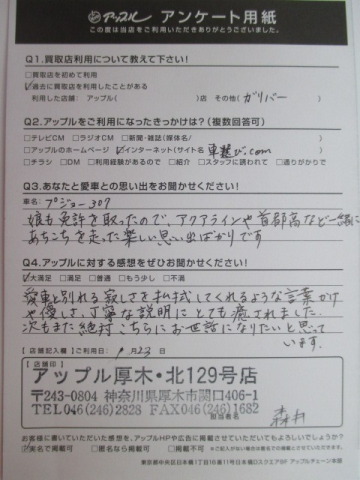 アップル アンケート用紙
この度は当店をご利用いただきありがとうございました。
Q1.買取店利用について教えて下さい!
□買取店を初めて利用
☑過去に買取店を利用したことがある
利用した店舗: アップル( )店 その他( ガリバー )
Q2.アップルをご利用になったきっかけは?(複数回答可)
□テレビCM □ラジオCM □新聞・雑誌(媒体名/ )
□アップルのホームページ ☑インターネット(サイト名 車選び.com )
□チラシ □DM □利用経験があるので □紹介 □スタッフに誘われて □通りがかりで
Q3.あなたと愛車との思い出をお聞かせください!
車名: プジョー307
娘も免許を取ったので、アクアラインや首都高など一緒に
あちこちを走った楽しい思い出ばかりです
Q4.アップルに対する感想をぜひお聞かせください!
☑大満足 □満足 □普通 □もう少し □不満
愛車と別れる寂しさを払拭してくれるような言葉かけ
や優しさ、丁寧な説明にとても癒されました。
次もまた絶対こちらにお世話になりたいと思って
います。
【店舗記入欄】〈ご利用日〉 月23日
【店舗印】
アップル厚木・北129号店
〒243-0804 神奈川県厚木市関口406-1
TEL046(246)2828 FAX046(246)1682
担当者名 森井
お客様に書いていただいた感想を、アップルHPや広告に掲載させていただいてもよろしいでしょうか?
☑実名で掲載可 □匿名なら掲載可 □掲載不可
東京都中央区日本橋1丁目16番11号日本橋Dスクエア8F アップルチェーン本部